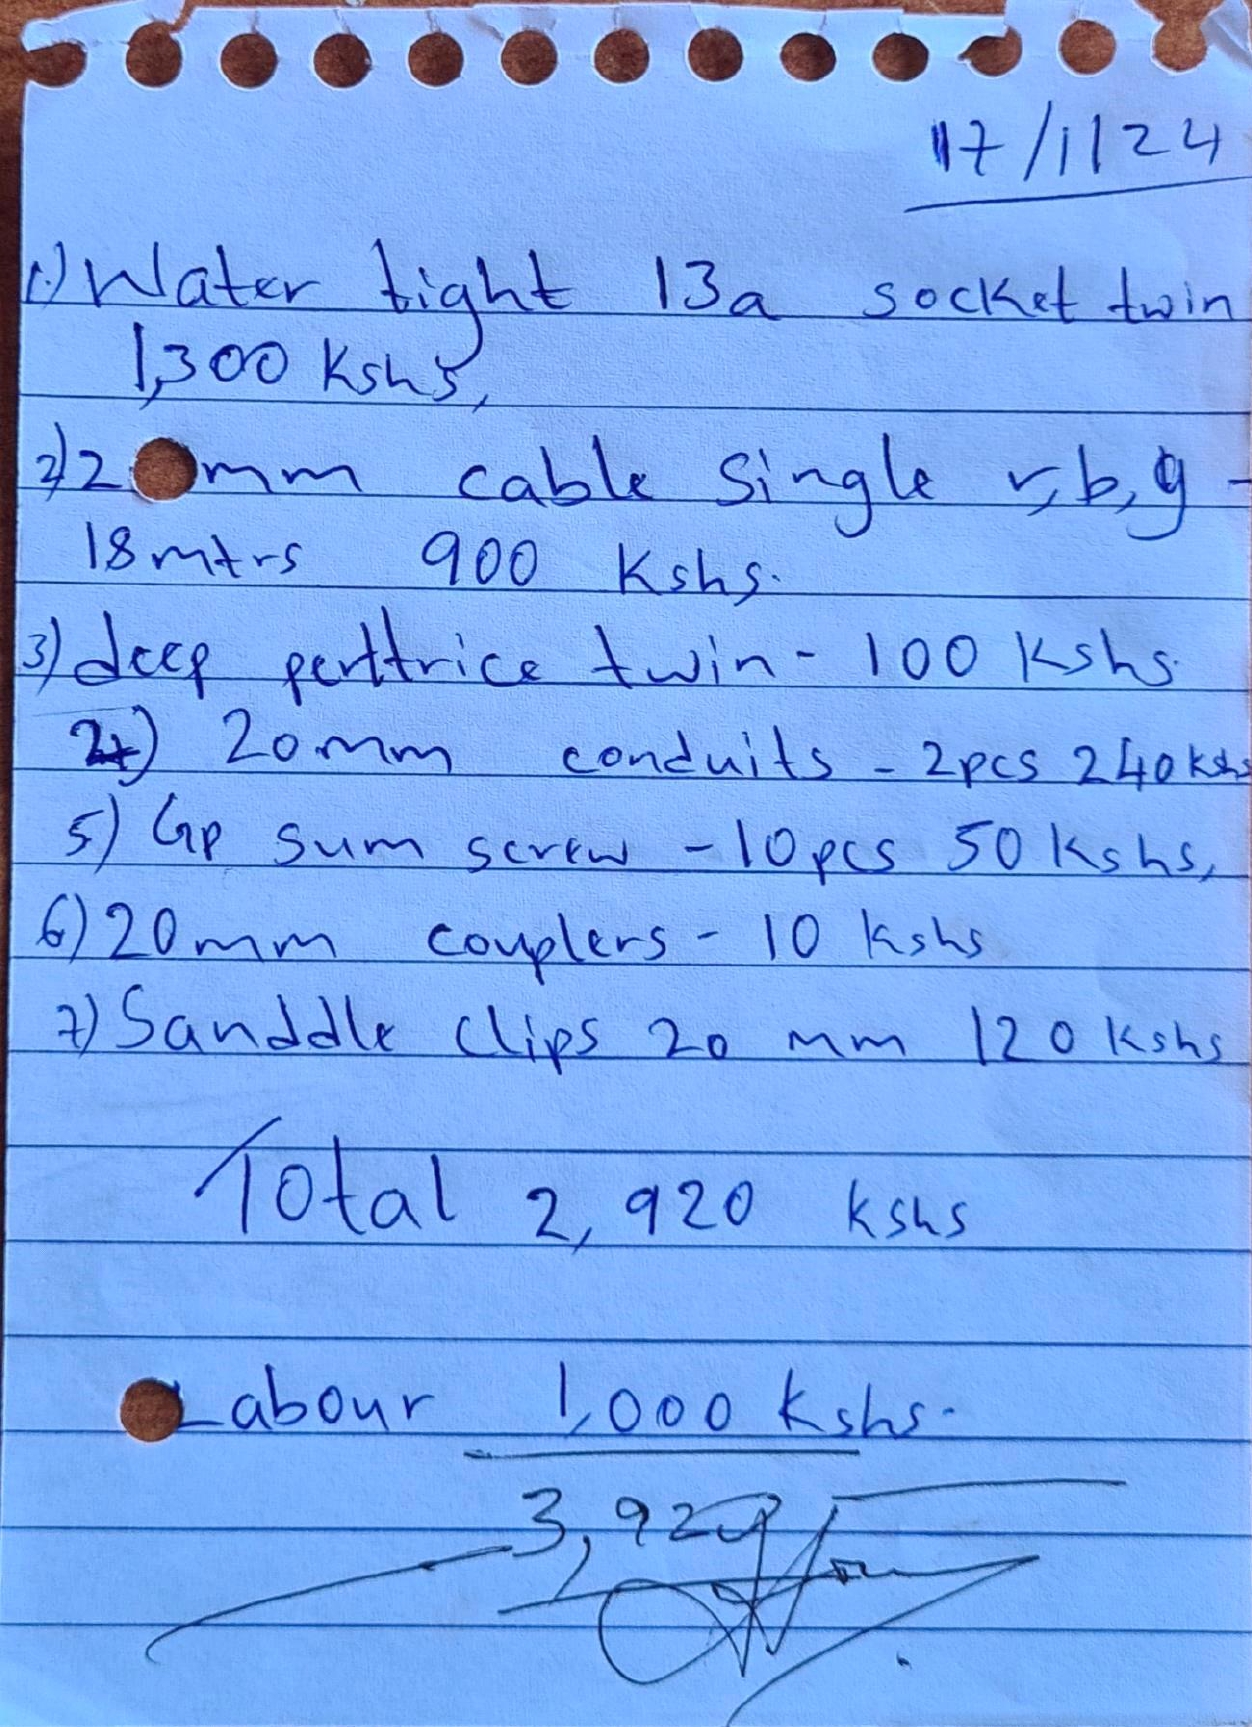 17/1/24
1.) Water tight 13a socket twin
1,300 Kshs,
2) 2 mm cable single r, b, g -
18mtrs 900 Kshs.
3) deep perttrice twin - 100 Kshs.
4) 20mm conduits - 2pcs 240 Kshs
5) Gp sum screw - 10pcs 50 Kshs,
6) 20mm couplers - 10 Kshs
7) Sanddle Clips 20 mm 120 Kshs
Total 2,920 Kshs
Labour 1,000 Kshs.
3,920